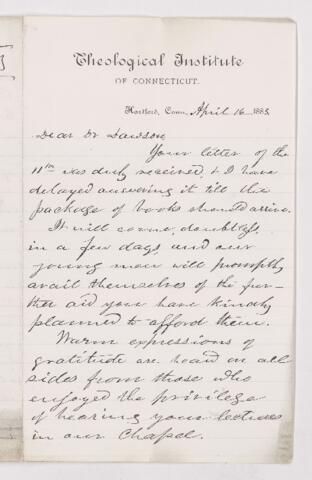 Theological Institute
OF CONNECTICUT.
Hartford, Conn., April 16 1883.
Dear Dr Dawson,
Your letter of the
11th was duly received, & I have
delayed answering it till the
package of books should arrive.
It will come, doubtless,
in a few days, and our
young men will promptly
avail themselves of the fur-
ther aid you have kindly
planned to afford them.
Warm expressions of
gratitude are heard on all
sides from those who
enjoyed the privilege
of hearing your lectures
in our Chapel.